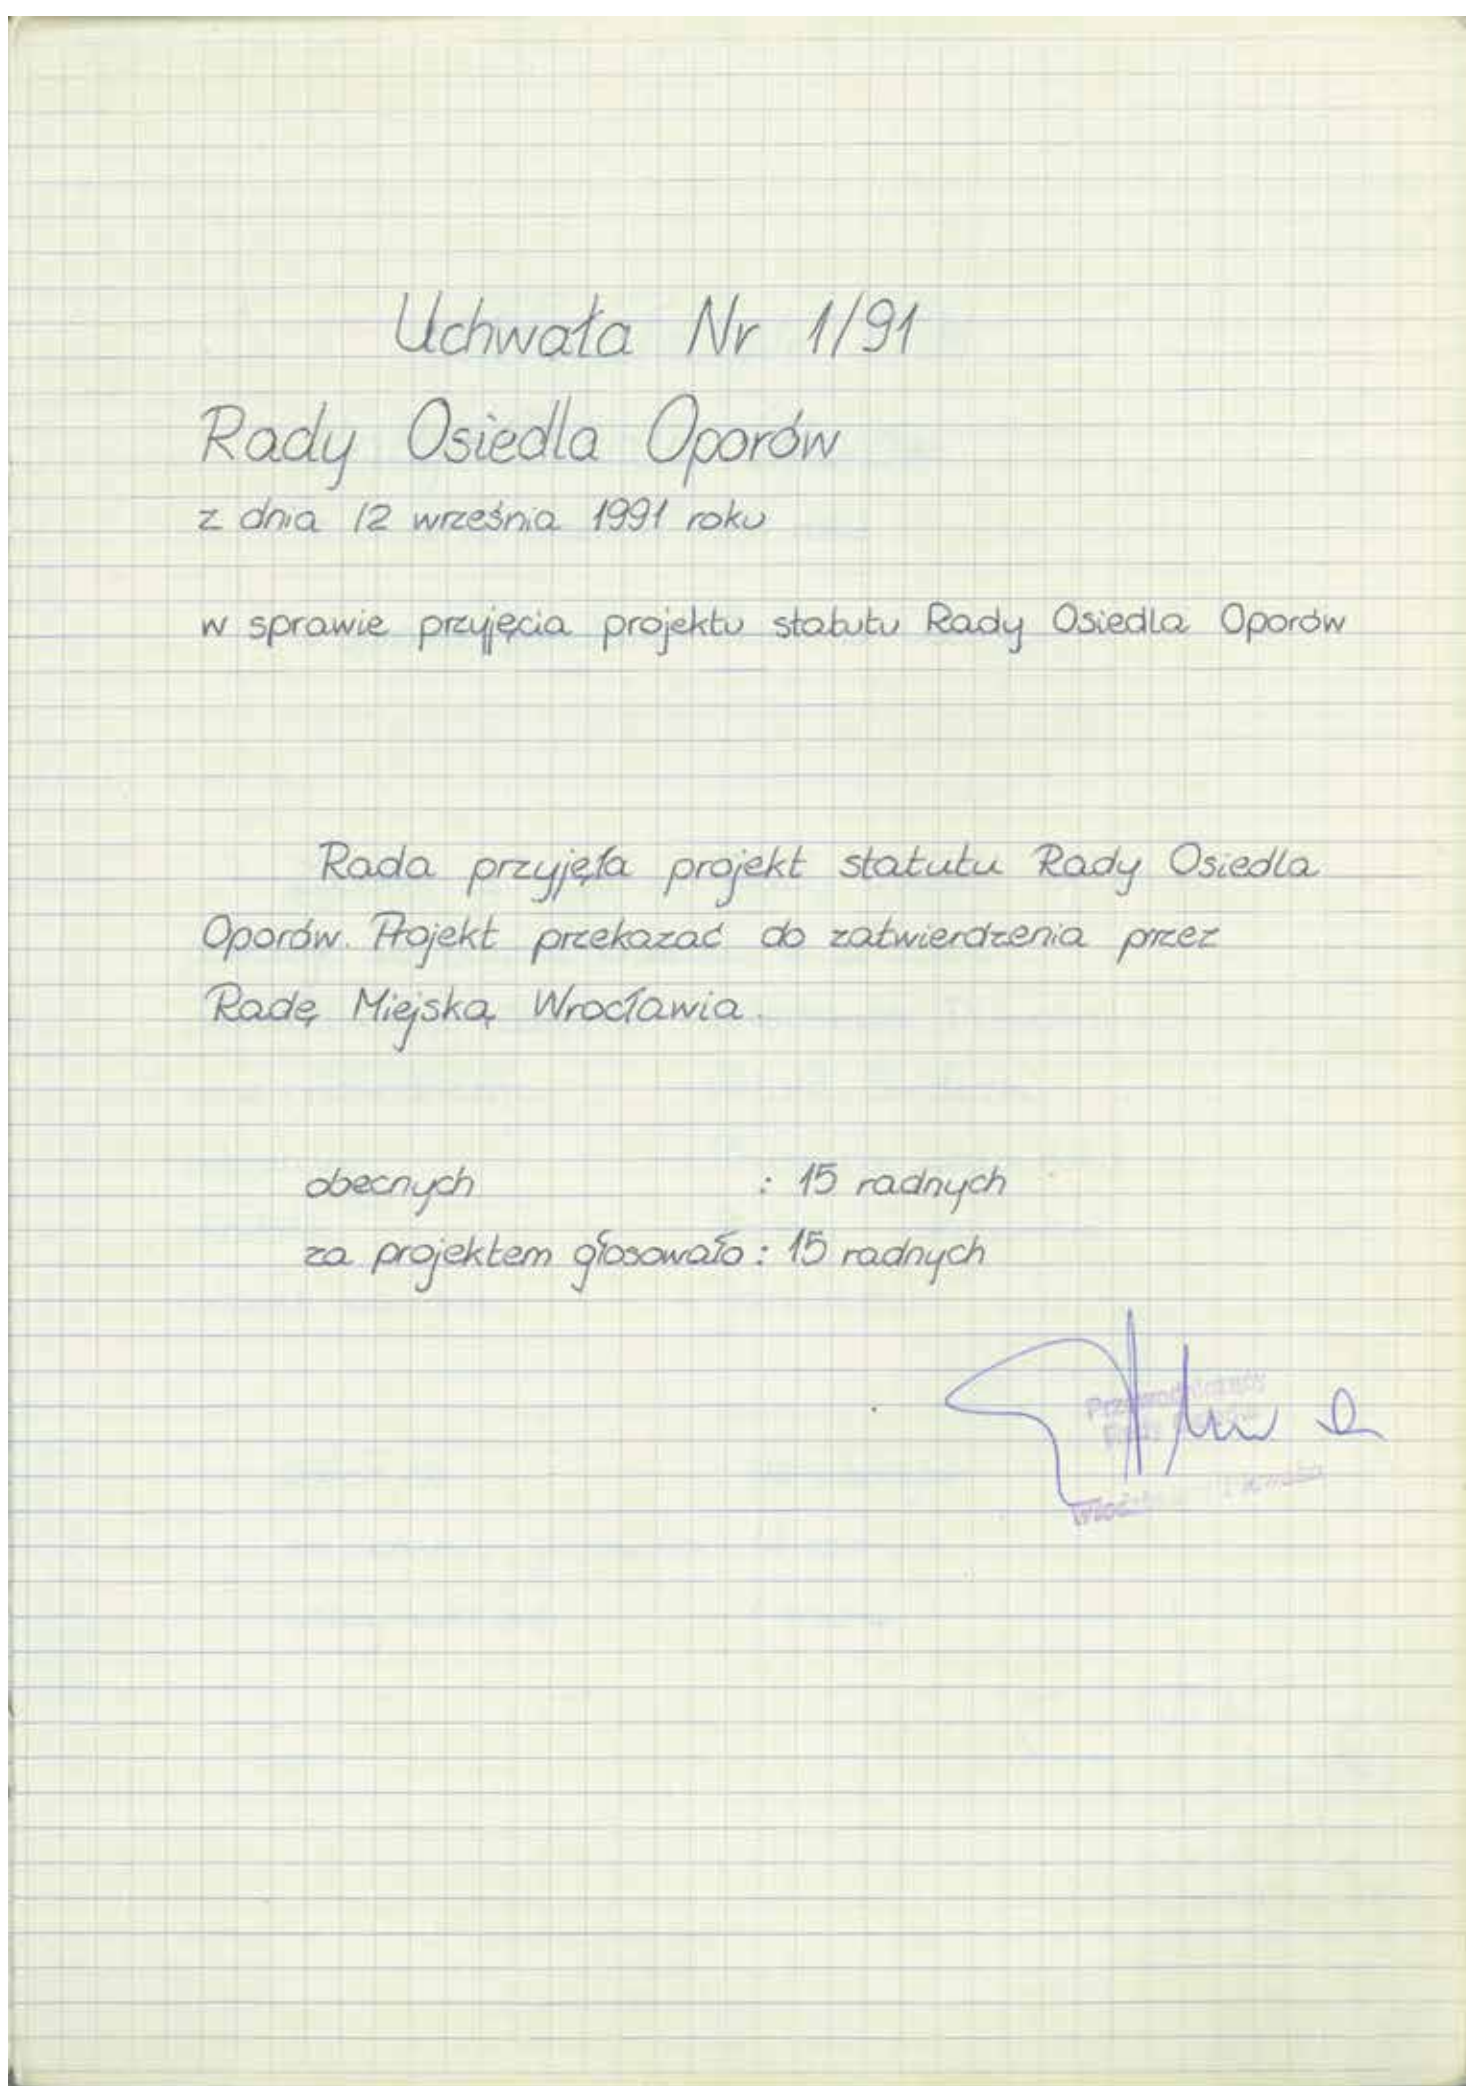 Uchwała Nr 1/91
Rady Osiedla Oporów
z dnia 12 września 1991 roku
w sprawie przyjęcia projektu statutu Rady Osiedla Oporów
Rada przyjęła projekt statutu Rady Osiedla
Oporów. Projekt przekazać do zatwierdzenia przez
Radę Miejską Wrocławia.
obecnych : 15 radnych
za projektem głosowało : 15 radnych
Przewodniczący
Rady